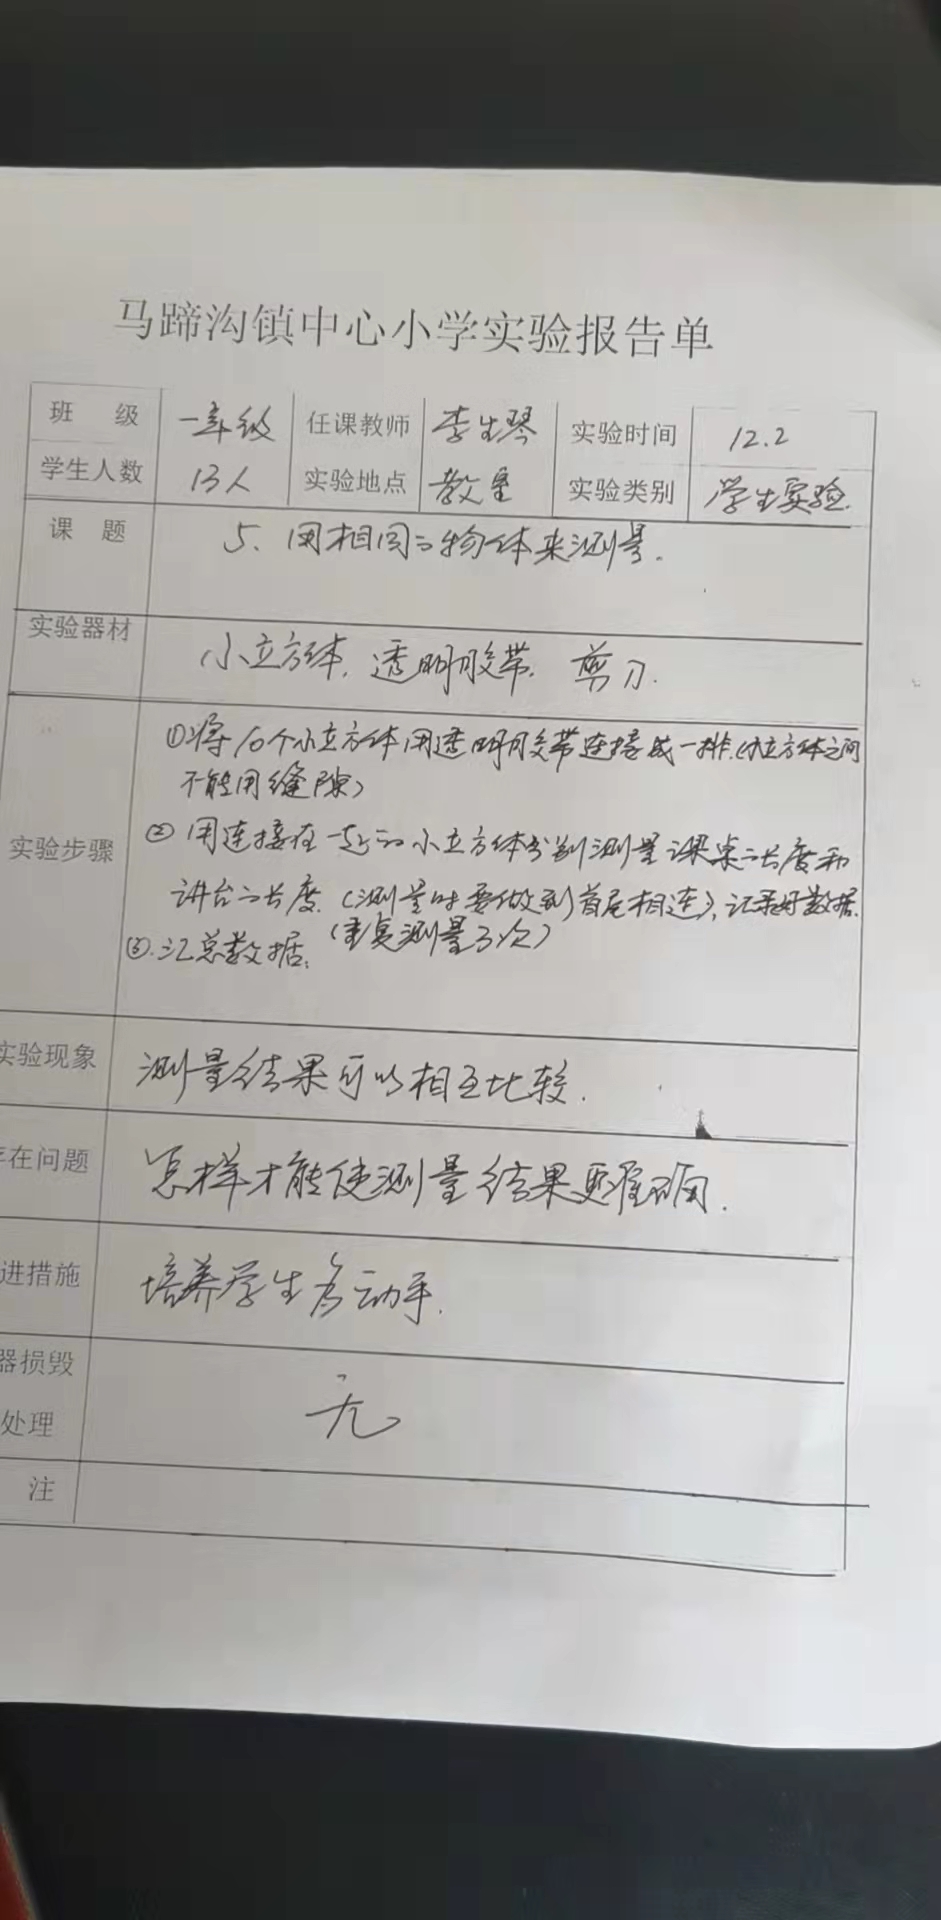 马蹄沟镇中心小学实验报告单
班 级 一年级 任课教师 李生琴 实验时间 12.2
学生人数 13人 实验地点 教室 实验类别 学生实验.
课 题 5、用相同的物体来测量.
实验器材 小立方体、透明胶带、剪刀.
①将10个小立方体用透明胶带连接成一排.(小立方体之间
不能用缝隙)
实验步骤 ②用连接在一起的小立方体分别测量课桌的长度和
讲台的长度.(测量时要做到首尾相连),记录好数据.
(重复测量3次)
③.汇总数据、
实验现象 测量结果可以相互比较.
存在问题 怎样才能使测量结果更准确.
进措施 培养学生多动手.
器损毁
处理 无
注